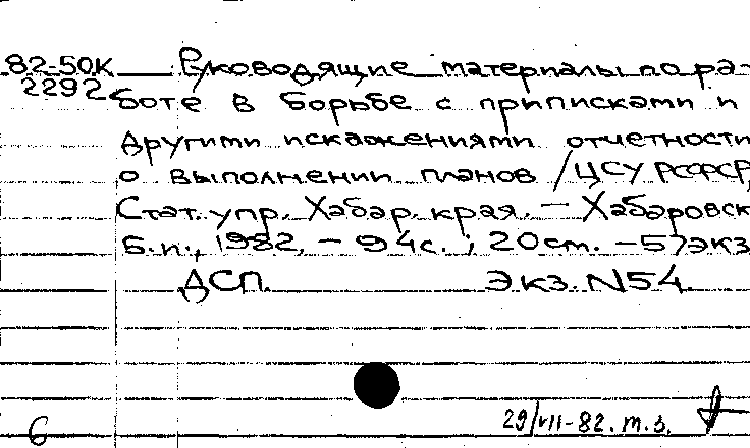 82-50К Руководящие материалы по ра-
2292 боте в борьбе с приписками и
другими искажениями отчетности
о выполнении планов /ЦСУ РСФСР,
Стат. упр. Хабар. края. – Хабаровск
Б.и., 1982. – 94с.; 20см. – 57экз
ДСП. Экз. N54.
29/VII-82. т.з.
6